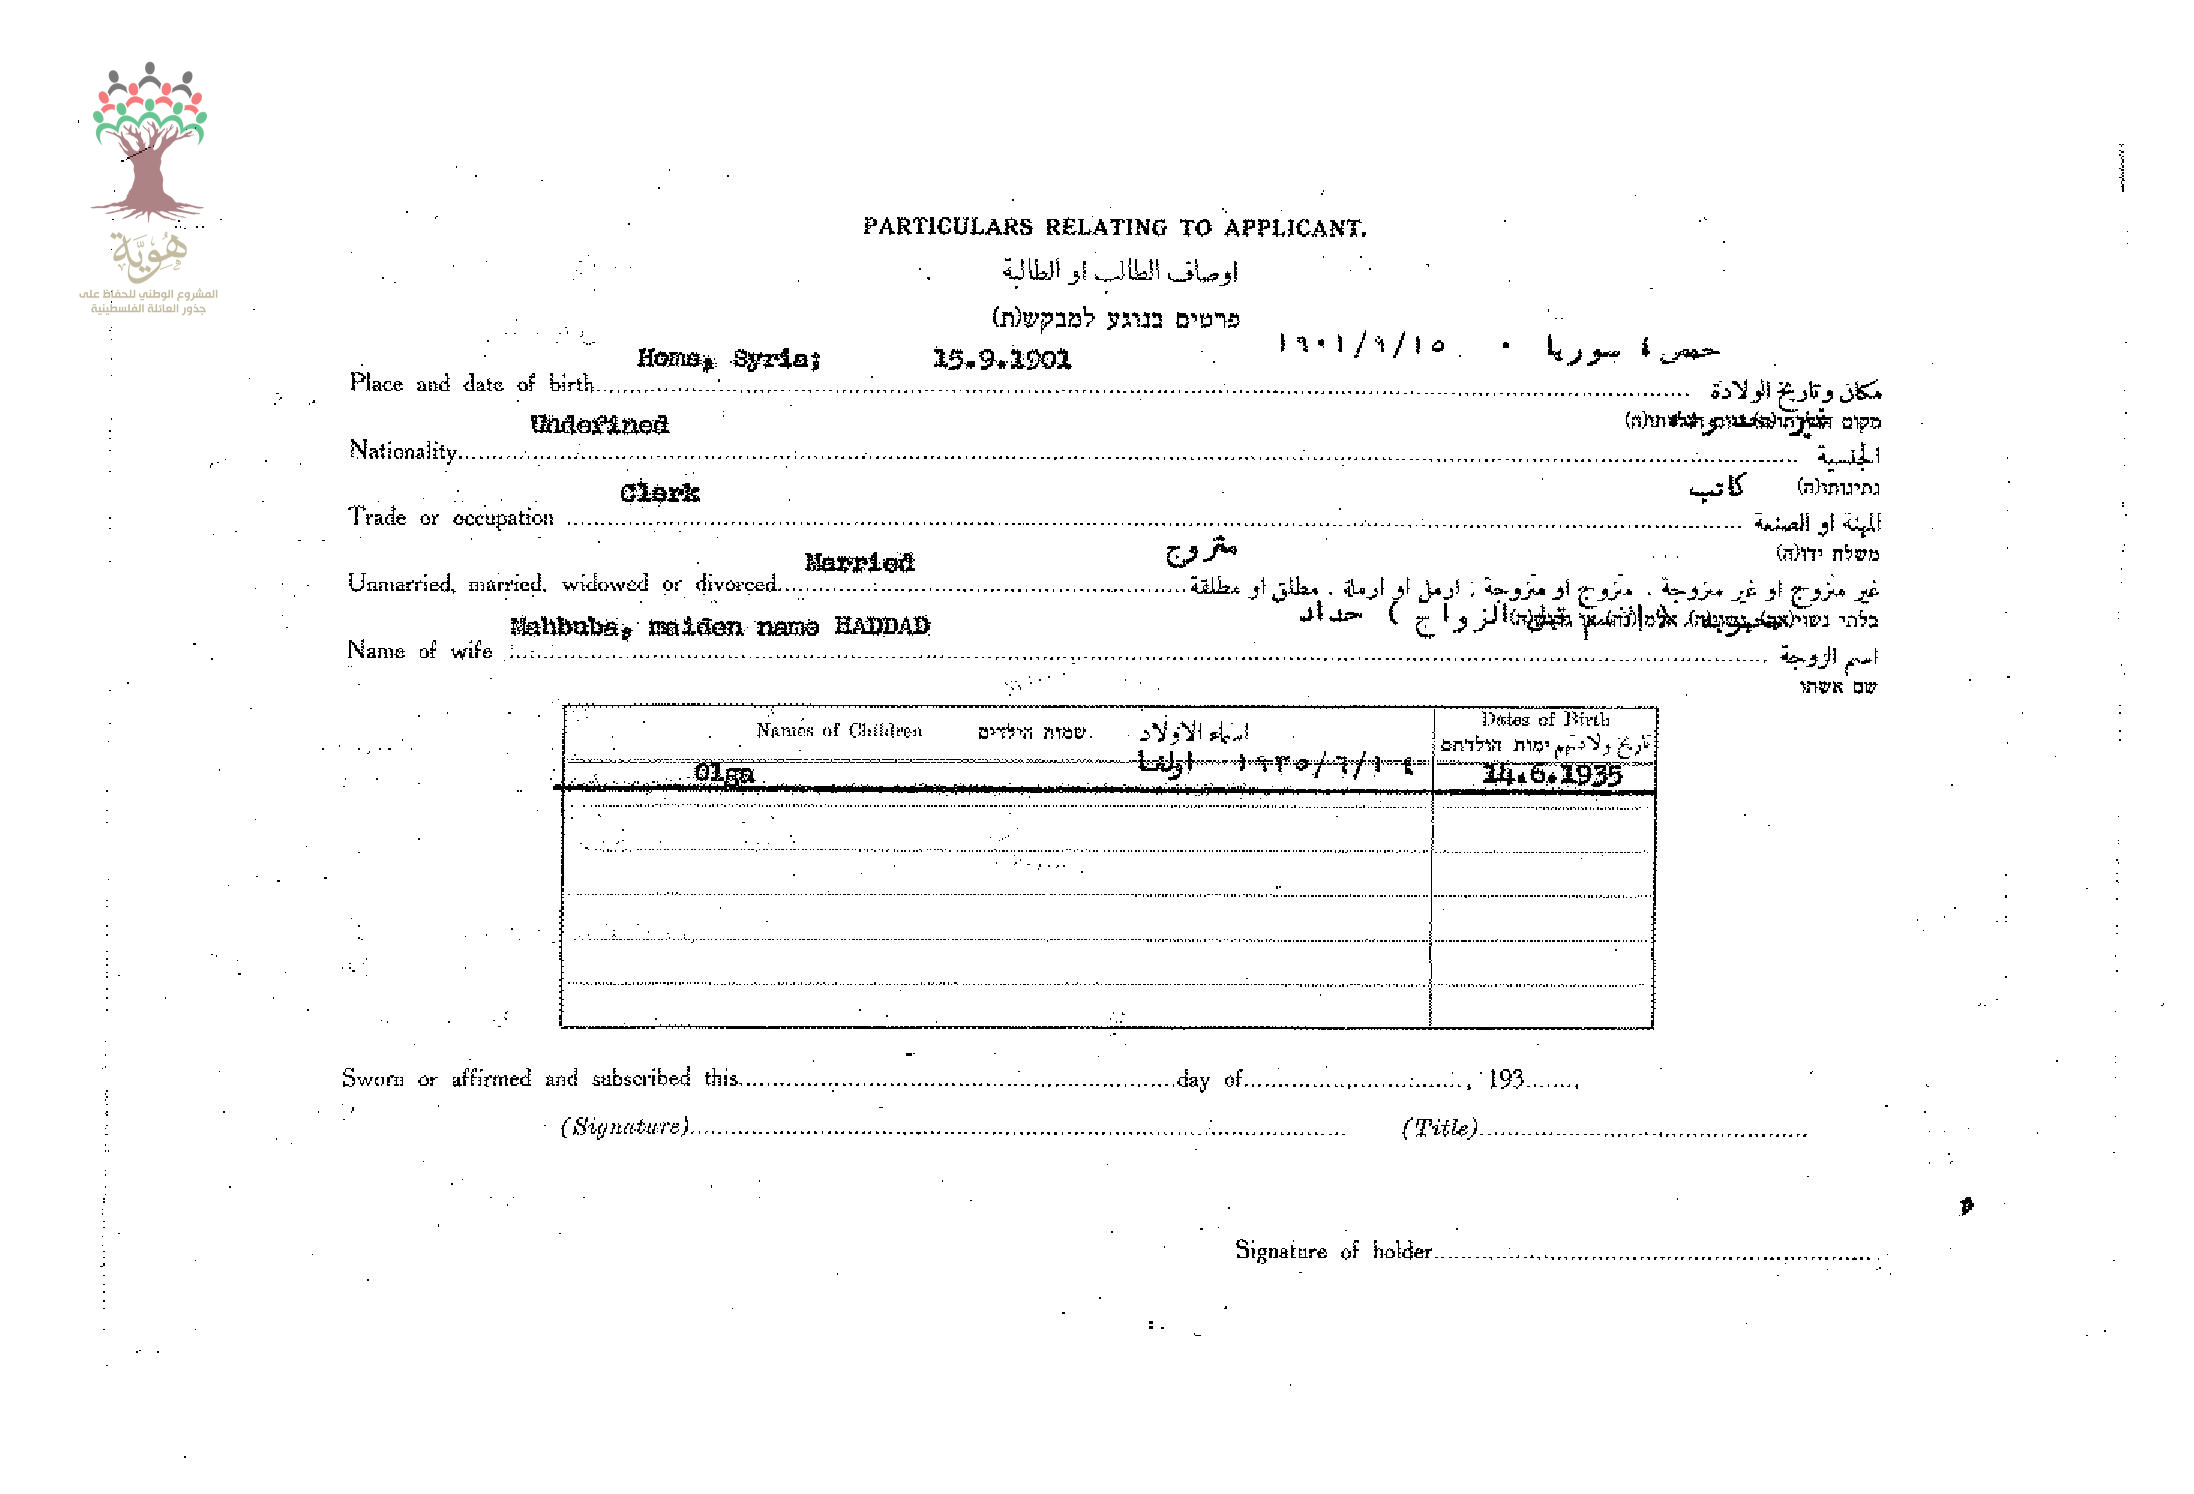 هُوِيَّة
المشروع الوطني للحفاظ على
جذور العائلة الفلسطينية
PARTICULARS RELATING TO APPLICANT.
اوصاف الطالب او الطالبة
פרטים בנוגע למבקש(ת)
Homs, Syria; 15.9.1901 حمص ، سوريا ٠ ١٩٠١/٩/١٥
Place and date of birth مكان وتاريخ الولادة
Undefined מקום
Nationality الجنسية
Clerk كاتب נתינותו(ה)
Trade or occupation المهنة او الصنعة
Married متزوج משלח ידו(ה)
Unmarried, married, widowed or divorced غير متزوج او غير متزوجة . متزوج او متزوجة ; ارمل او ارملة . مطلق او مطلقة
Mahbuba, maiden name HADDAD الزواج ) حداد בלתי נשוי
Name of wife اسم الزوجة
שם אשתו
Names of Children שמות הילדים. اسماء الاولاد Dates of Birth
تاريخ ولادتهم ימות הולדתם
Olga اولغا ١٩٣٥/٦/١٤ 14.6.1935
Sworn or affirmed and subscribed this day of , 193 .
(Signature) (Title)
Signature of holder